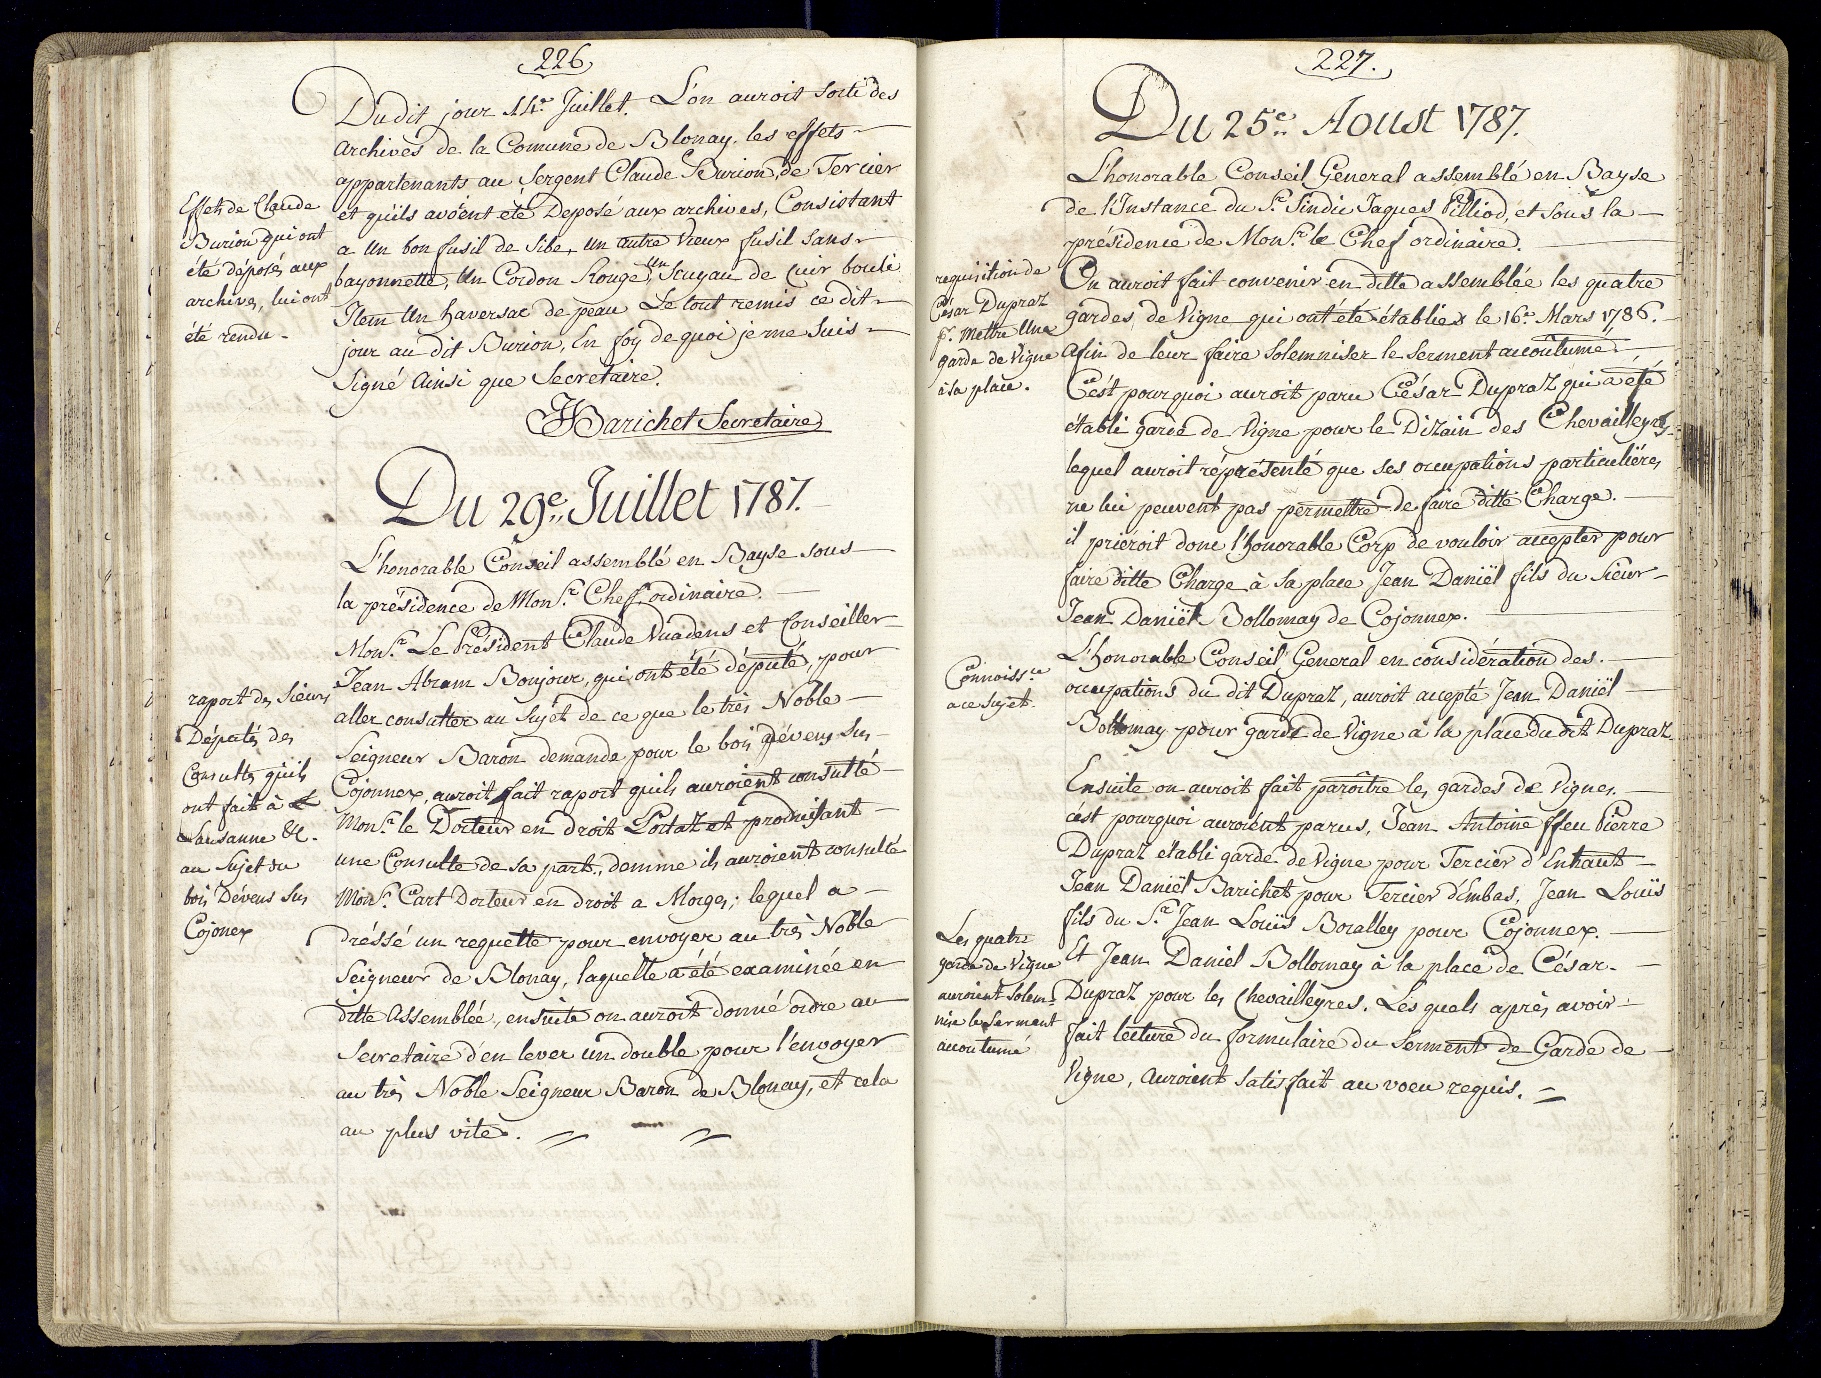 226
Du dit jour 14e. Juillet. L'on auroit sorti des
archives de la Comune de Blonay, les effets
appartenants au Sergent Claude Burion, de Tercier
et quils avoient été Deposé aux archives, Consistant
a Un bon fusil de Sibe, un autre Vieux fusil sans
bayonnette, Un Cordon Rouge, un Scuyau de Cuir bouli
Item Un haversac de peau Le tout remis ce dit
jour au dit Burion, En foy de quoi je me suis
Signé Ainsi que Secretaire.
JJBarichet Secretaire
Effets de Claude
Burion qui ont
été déposés aux
archives, lui ont
été rendu.
Du 29e. Juillet 1787.
L'honorable Conseil assemblé en Bayse sous
la présidence de Monsr. Chef ordinaire.
Monsr. Le Président Claude Vuadens et Conseiller
Jean Abram Bonjour, qui ont été députe, pour
aller consulter au sujet de ce que le très Noble
Seigneur Baron demande pour le bois dévens sus
Cojonnex, auroit fait raport quils auroient consulté
Monsr. le Docteur en droit Portaz et produisant
une Consulte de sa part, comme ils auroient consulté
Monsr. Cart Docteur en droit a Morges; lequel a
dréssé un requette pour envoyer au très Noble
Seigneur de Blonay, laquelle a été examinée en
ditte Assemblée, ensuite on auroit donné ordre au
Secretaire d'en lever un double pour l'envoyer
au très Noble Seigneur Baron de Blonay, et cela
au plus vite.
raport des Sieurs
Députés des
Consultes quils
ont fait à
Lausanne &c.
au Sujet du
bois Dévens Sus
Cojonex
227.
Du 25e. Aoust 1787.
L'honorable Conseil General assemblé en Bayse
de l'Instance du Sr. Sindic Jaques Pilliod, et sous la
présidence de Monsr. le Chef ordinaire.
On auroit fait convenir en ditte assemblée les quatre
gardes de Vigne qui ont été établies le 16e. Mars 1786.
Afin de leur faire Solemniser le serment accoûtumé.
C'ést pourquoi auroit paru César Dupraz qui a été
établi garde de Vigne pour le Dizain des Chevailleyres,
lequel auroit réprésenté que ses occupations particuliéres
ne lui peuvent pas permettre de faire ditte Charge.
il prieroit donc l'honorable Corp de vouloir accepter pour
faire ditte Charge à sa place Jean Daniël fils du Sieur
Jean Daniël Bollomay de Cojonnex.
L'honorable Conseil General en considération des
occupations du dit Dupraz, auroit accepté Jean Daniël
Bollomay pour garde de Vigne à la place du dit Dupraz.
requisition de
César Dupraz
pr. mettre Une
garde de Vigne
à sa place.
Connoissce
a ce sujet.
Ensuite on auroit fait paroître les gardes de Vignes.
c'ést pourquoi auroient parus, Jean Antoine ffeu Pierre
Dupraz etabli garde de Vigne pour Tercier d'Enhaut
Jean Daniël Barichet pour Tercier d'Embas, Jean Louïs
fils du Sr. Jean Louïs Boralley pour Cojonnex.
Et Jean Daniel Bollomay à la place de César
Dupraz pour les Chevailleyres. Les quels aprés avoir
fait lecture du formulaire du serment de Garde de
Vigne, auroient satisfait au voeu requis.
Les quatre
garde de Vigne
auroient solem-
nisé le Serment
accoutumé